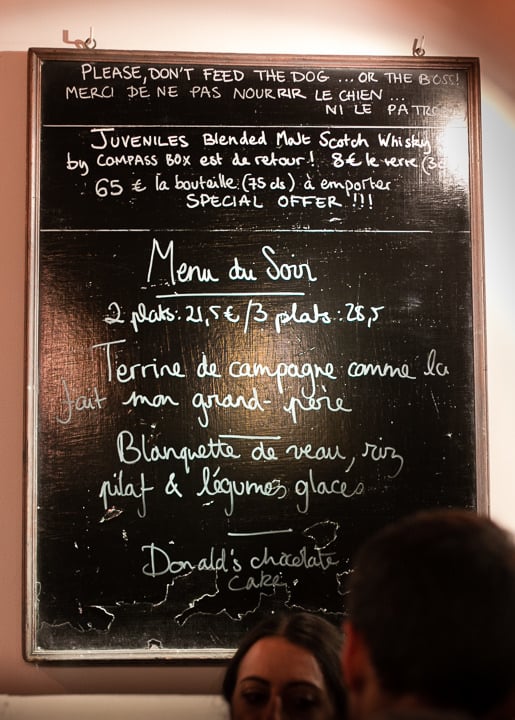 PLEASE, DON'T FEED THE DOG ... OR THE BOSS!
MERCI DE NE PAS NOURRIR LE CHIEN ...
NI LE PATRON
JUVENILES Blended Malt Scotch Whisky
by COMPASS BOX est de retour! 8€ le verre
65 € la bouteille (75 cls) à emporter
SPECIAL OFFER !!!
Menu du Soir
2 plats: 21,5€/3 plats: 26,5
Terrine de campagne comme la
fait mon grand-père
Blanquette de veau, riz
pilaf & légumes glacés
Donald's chocolate
cake